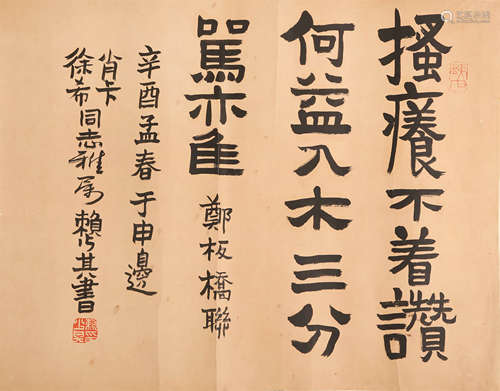 搔癢不着讚
何益入木三分
罵亦佳 鄭板橋聯
辛酉孟春于申邊
肖卡
徐希同志雅属 賴少其書